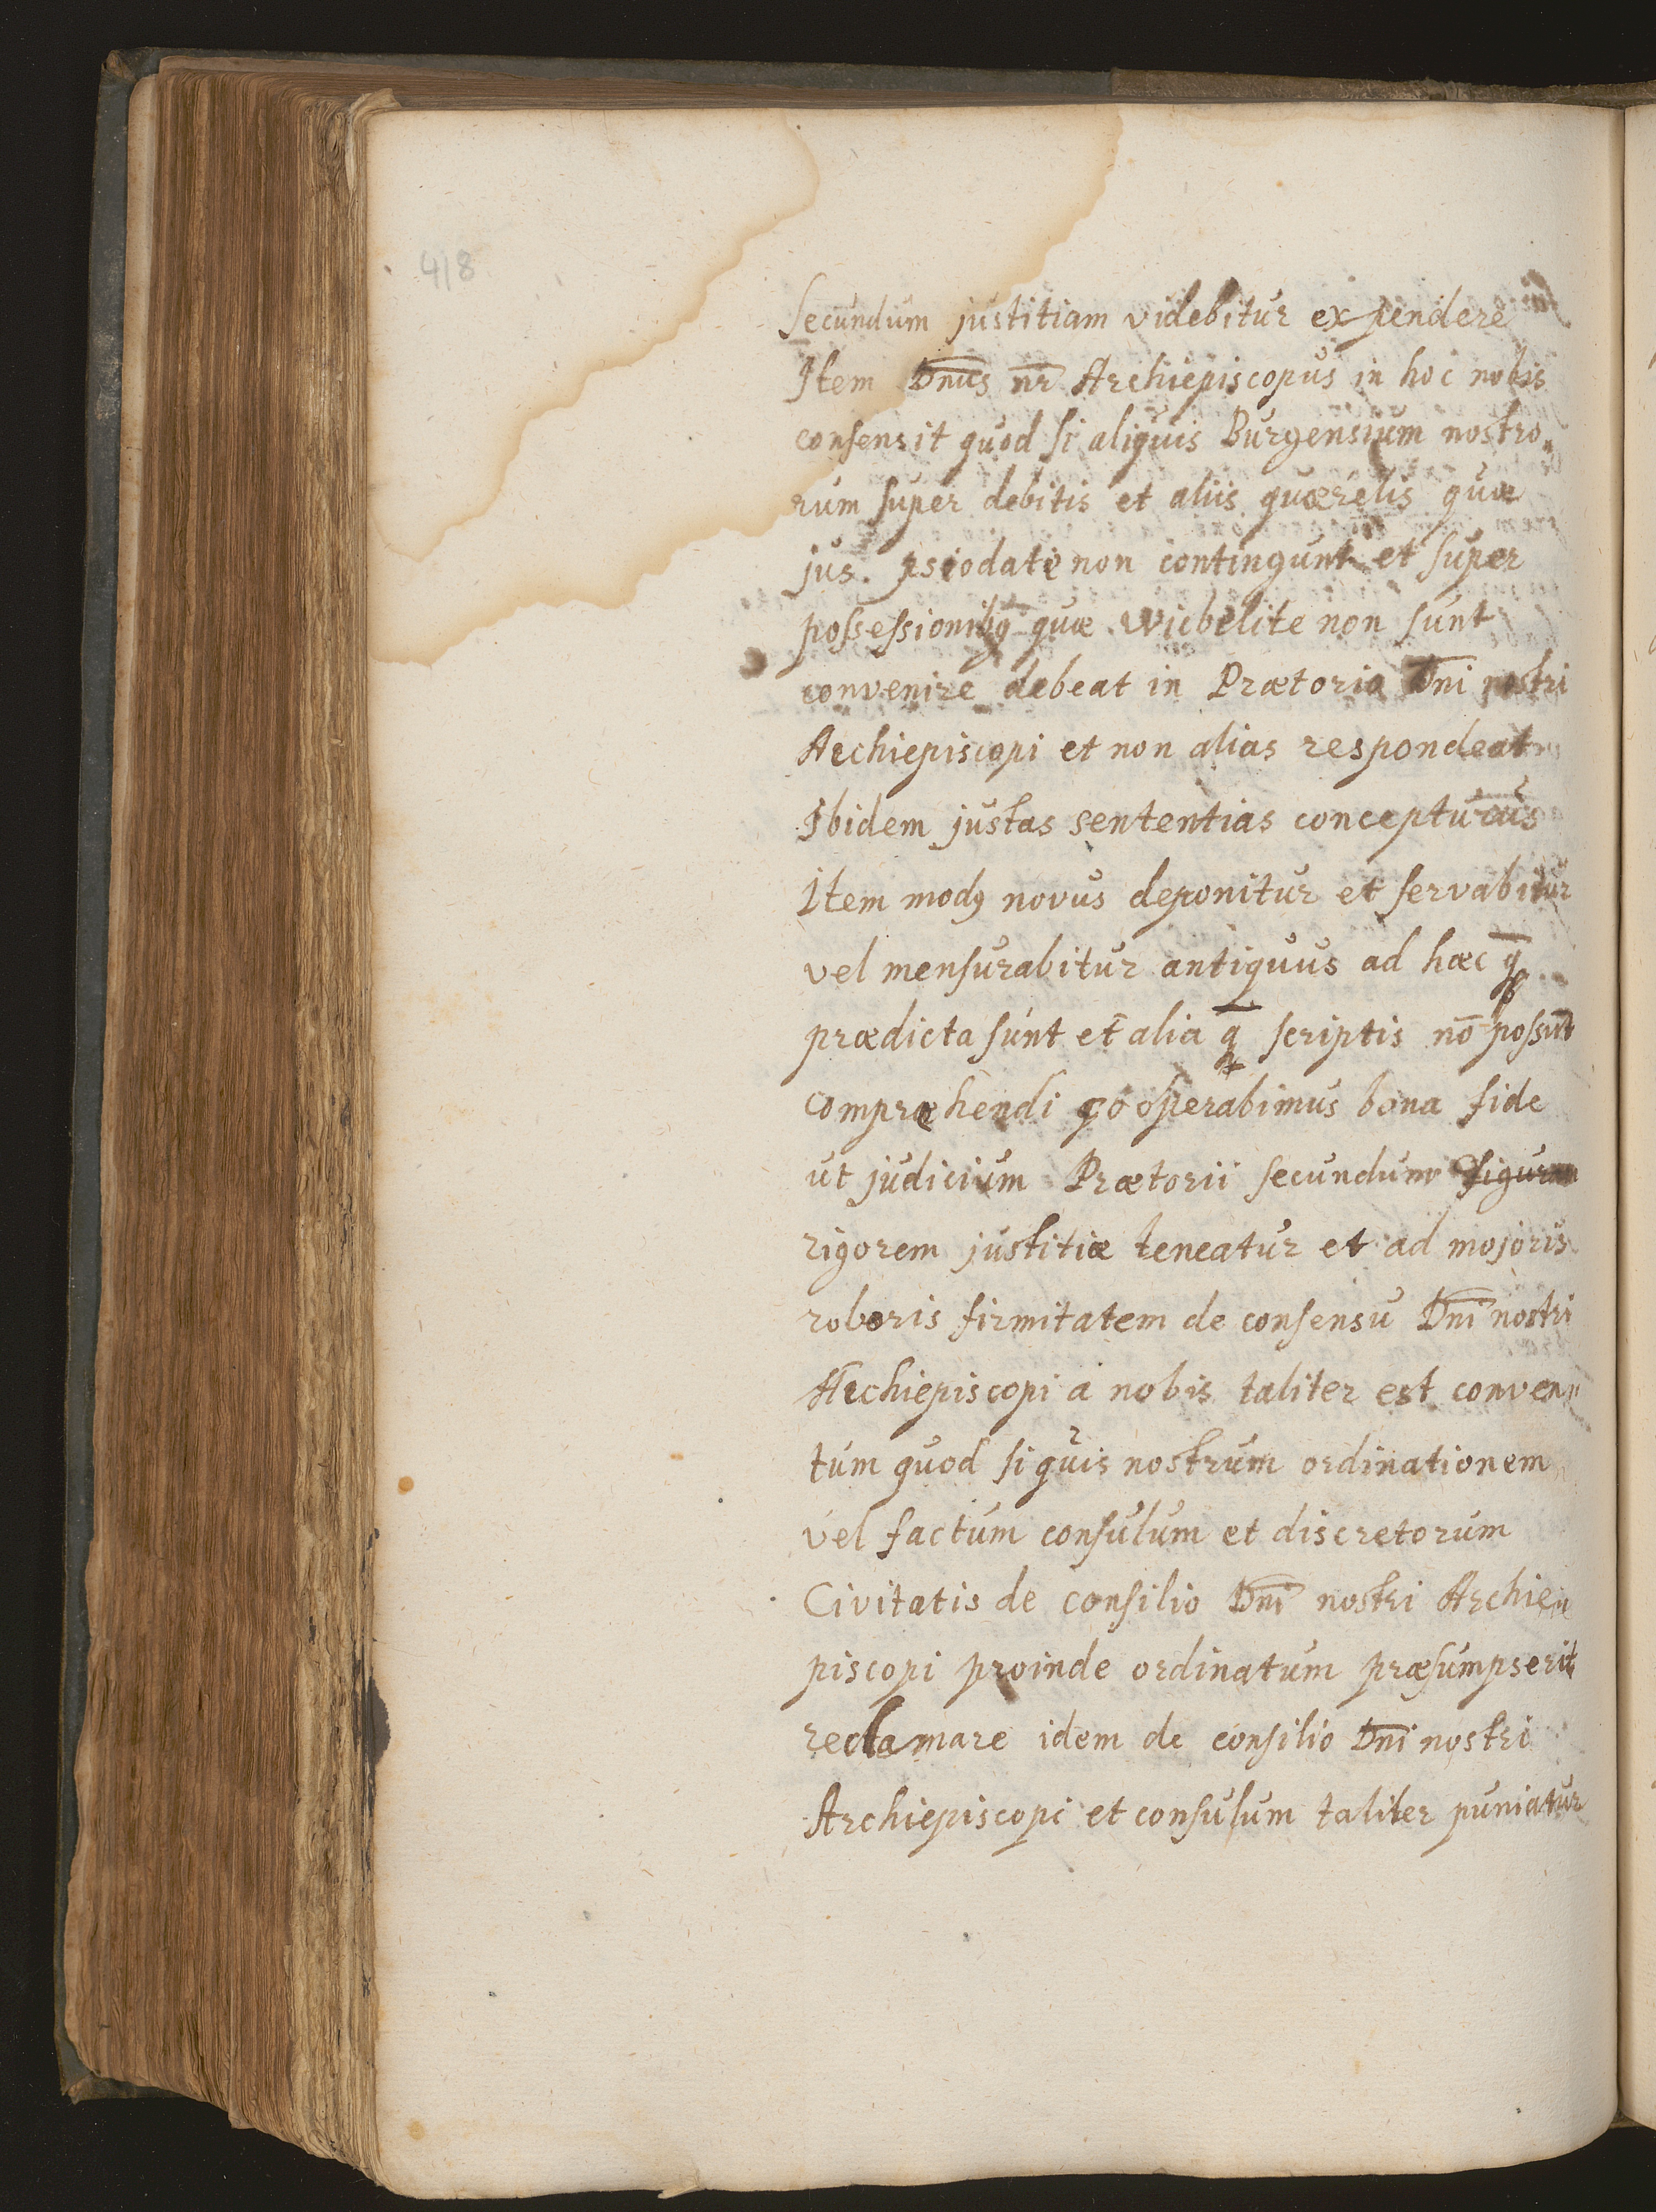 418
Secundum justitiam videbitur expendere
Item Dnus nr Archiepiscopus in hoc nobis
consensit quod si aliquis Burgensium nostro
rum super debitis et aliis quærelis quæ
jus. psiodate non contingunt et super
possessionibq quæ wicbelite non sunt
convenire debeat in Prætorio Dni nostri
Archiepiscopi et non alias respondeat
Ibidem justas sententias concepturus
Item modq novus deponitur et servabitur
vel mensurabitur antiquus ad hæc q̄
prædicta sunt et alia q̄ scriptis nō possūt
compræhendi cooperabimus bona fide
ut judicium Prætorii secundum figuram
rigorem justitiæ teneatur et ad majoris
roboris firmitatem de consensu Dni nostri
Archiepiscopi a nobis taliter est conven
tum quod si quis nostrum ordinationem
vel factum consulum et discretorum
Civitatis de consilio Dni nostri Archie
piscopi proinde ordinatum præsumpserit
reclamare idem de consilio Dni nostri
Archiepiscopi et consulum taliter puniatur